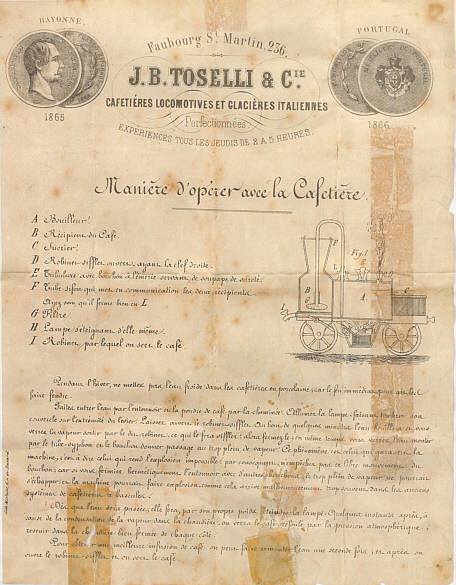 BAYONNE
1865
PORTUGAL
1866
Faubourg St Martin, 236.
J.B. TOSELLI & CIE
CAFETIÈRES LOCOMOTIVES ET GLACIÈRES ITALIENNES
Perfectionnées.
EXPÉRIENCES TOUS LES JEUDIS DE 2 A 5 HEURES.
Manière d'opérer avec la Cafetière.
A Bouilleur.
B Récipient du Café.
C Sucrier.
D Robinet-sifflet ouvert, ayant la clef droite.
E Tubulure avec bouchon à l'émerie servant de soupape de sûreté.
F Tube siphon qui met en communication les deux récipients.
Ayez soin qu'il ferme bien en L
G Filtre.
H Lampe s'éteignant d'elle même.
I Robinet par lequel on sert le café.
Fig. 1
Pendant l'hiver, ne mettez pas l'eau froide dans les cafetières en porcelaine, car le feu immédiat pourrait les
faire fendre.
Faites entrer l'eau par l'entonnoir et la poudre de café par la cheminée. Allumez la lampe faisant toucher son
couvercle sur l'extrémité du levier. Laissez ouvert le robinet-sifflet. Au bout de quelques minutes l'eau bouillira et vous
verrez la vapeur sortir par le dit robinet, ce qui le fera siffler; alors fermez-le; en même temps vous verrez l'eau monter
par le tube-syphon et le bouchon donner passage au trop plein de vapeur. Ce phénomène est celui qui garantit la
machine, c'est à dire celui qui rend l'explosion impossible; par conséquent n'empêchez pas le libre mouvement du
bouchon; car si vous fermiez hermétiquement l'entonnoir avec d'autres bouchons, le trop plein de vapeur ne pourrait
s'échapper et la machine pourrait faire explosion comme cela arrive malheureusement trop souvent dans les anciens
systèmes de cafetières à bascules.
Dès que l'eau sera passée, elle fera, par son propre poids, éteindre la lampe. Quelques instants après, à
cause de la condensation de la vapeur dans la chaudière, on verra le café, refoulé par la pression atmosphérique,
revenir dans la chaudière bien fermée de chaque côté.
Pour obtenir une meilleure infusion de café on peut faire remonter l'eau une seconde fois, et après on
ouvre le robinet-sifflet et on sert le café.